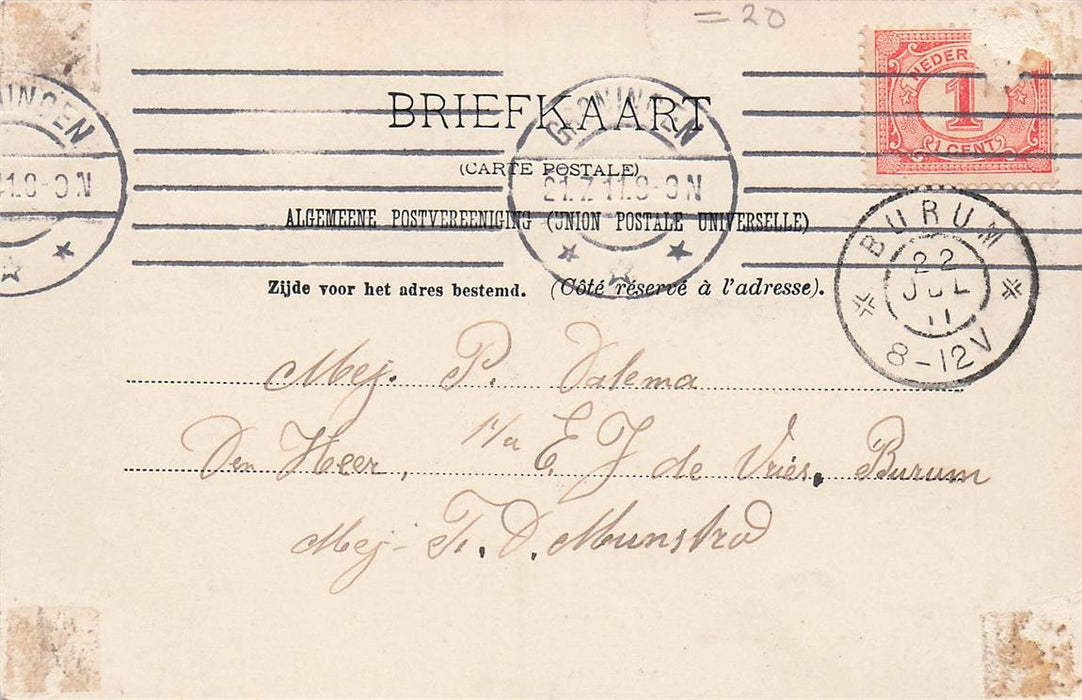 = 20
NEDER
1
1 CENT
NINGEN
11.8-9N
GRONINGEN
21.7.11.8-9N
BRIEFKAART
(CARTE POSTALE)
ALGEMEENE POSTVEREENIGING (UNION POSTALE UNIVERSELLE)
Zijde voor het adres bestemd. (Côté réservé à l'adresse).
BURUM
22
JUL
11
8-12V
Mej. P. Dalema
Den Heer, p/a E J de Vries, Burum
Mej- D.